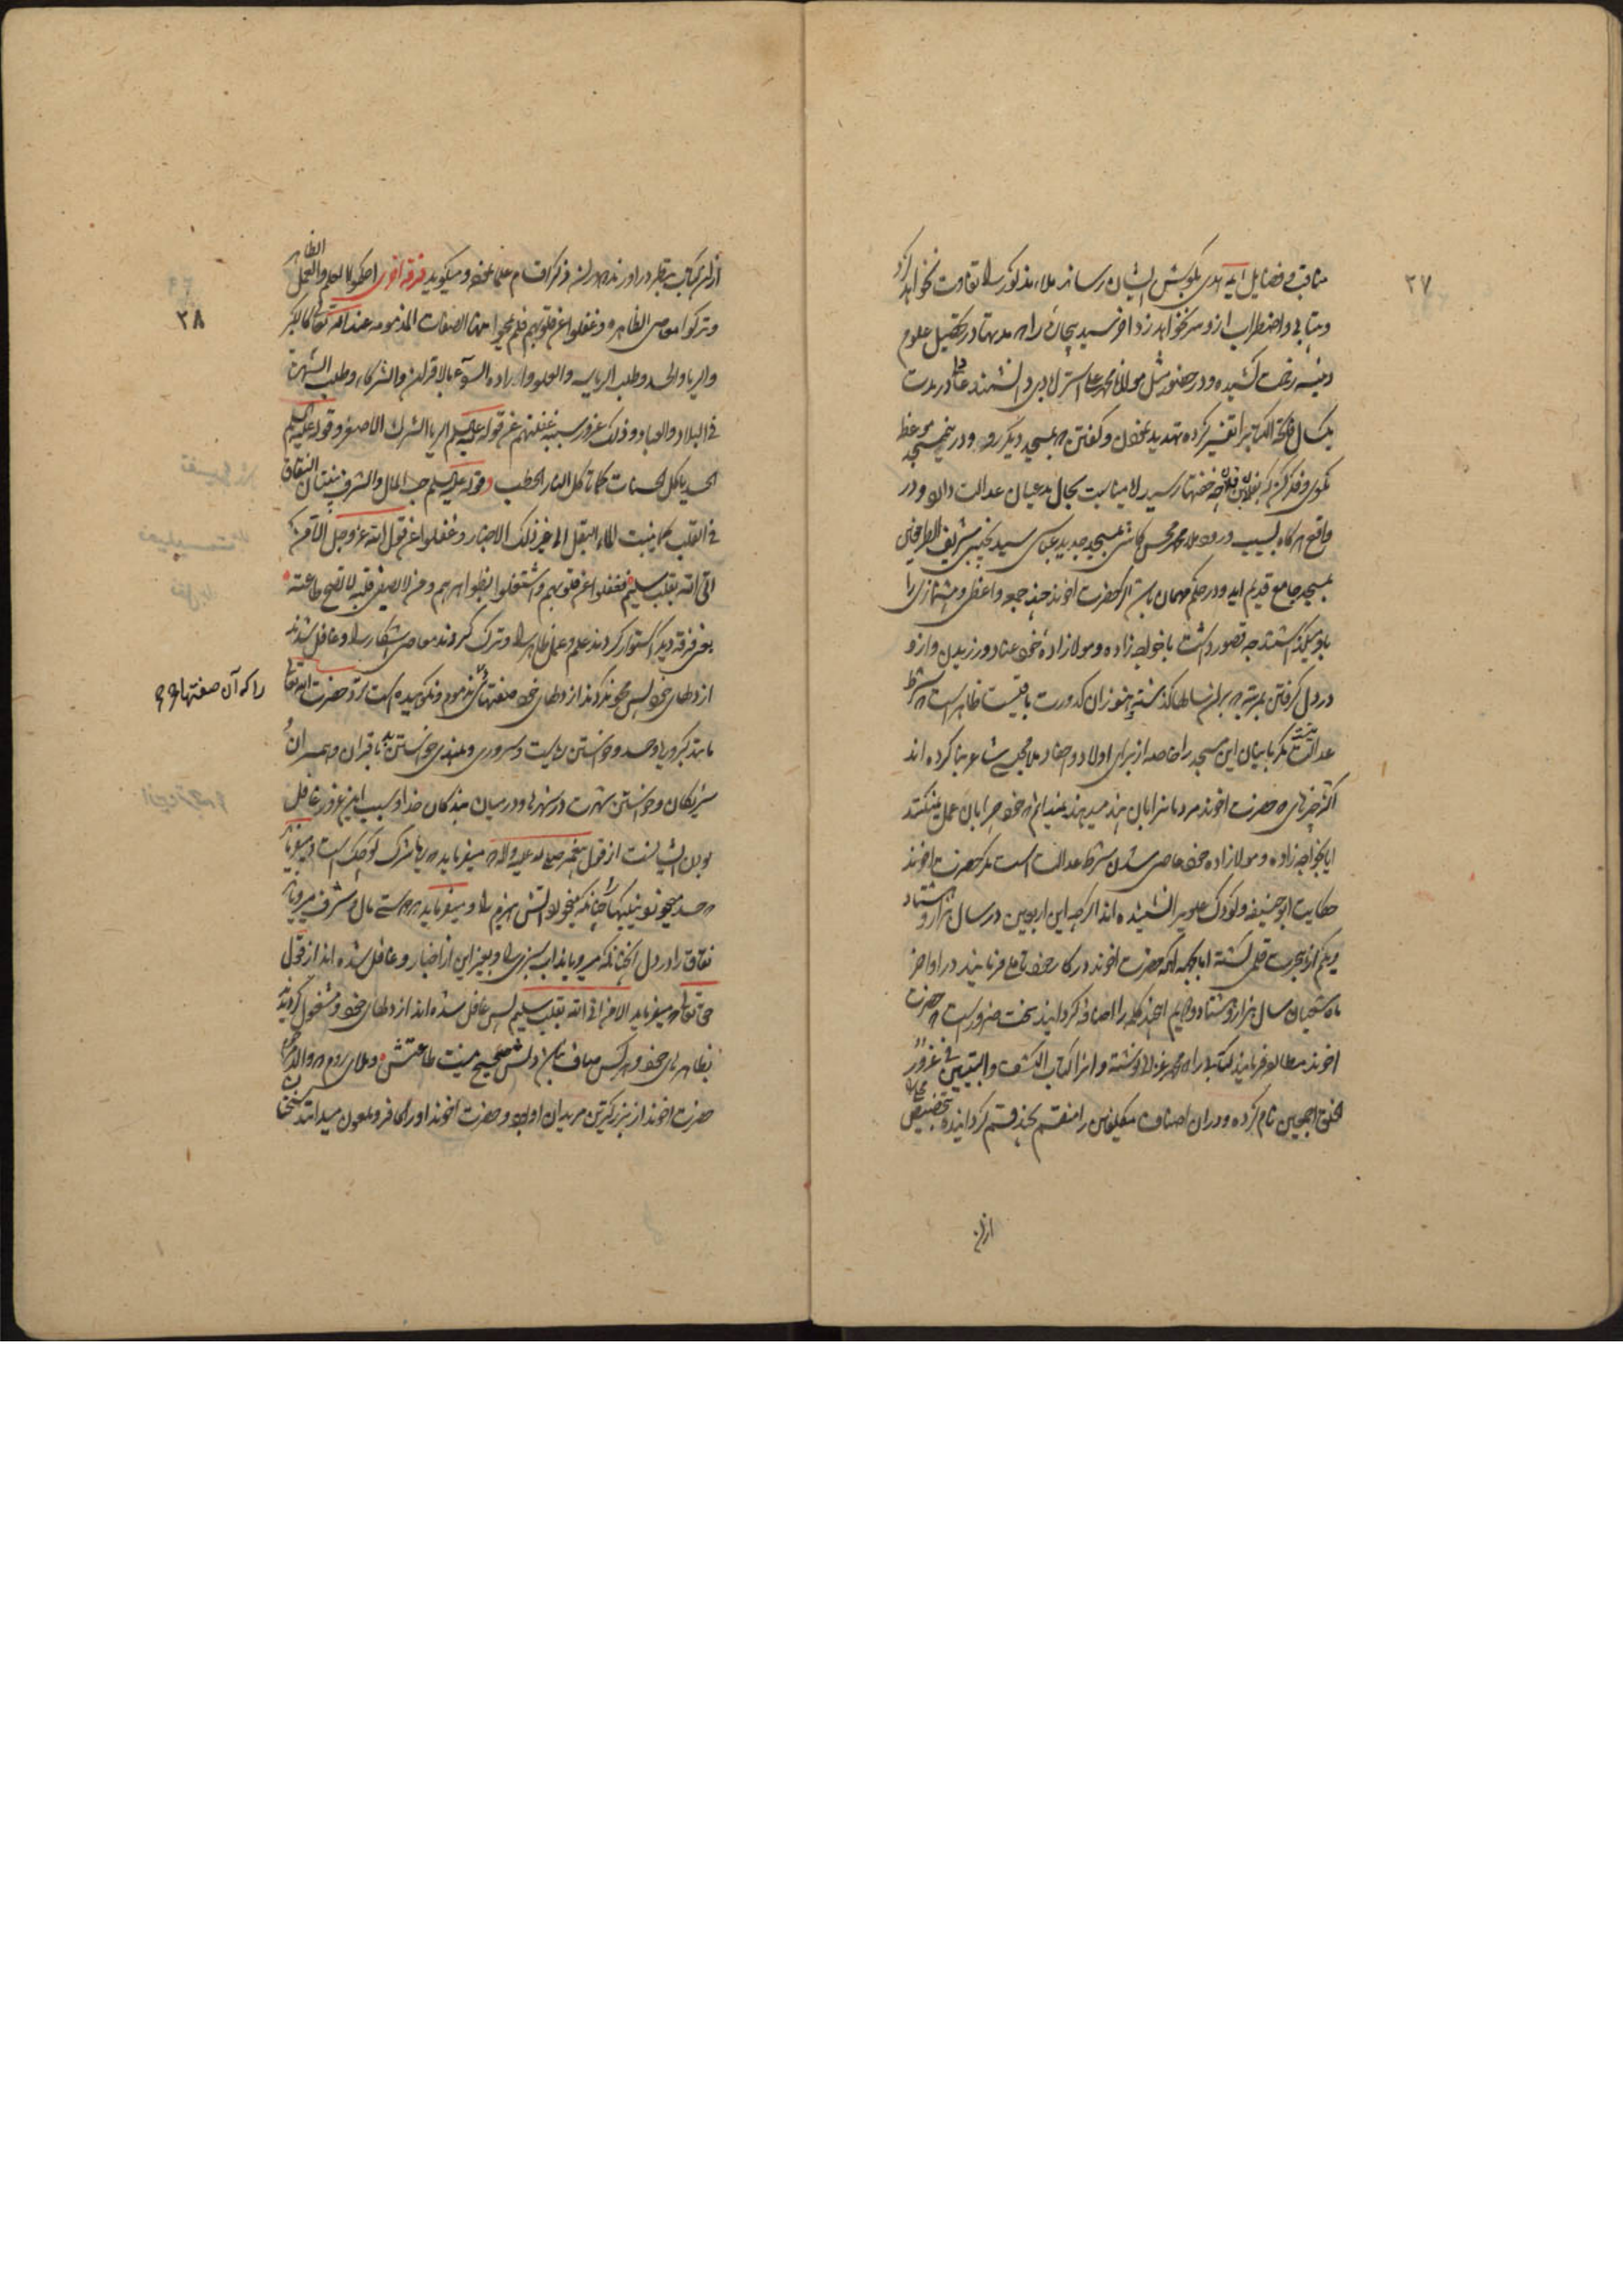 ۲۷
مناقب و فضایل ایمه هدی بکوش ایشان رساند ملاء مذکور را تفاوت نخواهد کرد
و بیتابی و اضطراب ازو سر نخواهد زد اخر سید بیچارهٔ را که مدتها در تحصیل علوم
دینیه زحمت کشیده و در حضور مثل مولانا محمد علی استرابادی دانشمند عادل در مدت
یکسال فاتحة الکتاب را تفسیر کرده تهدید نمودن و گفتن که بمسجد دیگر رو و درین مسجد موعظ
مگوی و فکر کن که بفلان فلان چه خفتها رسید لا مناسبت بحال مدعیان عدالت دارد و در
واقع هرگاه بسبب درود ملا محمد محسن کاشی بمسجد جدید عباسی سید نجیب شریف الطرفین
بمسجد جامع قدیم اید و در حکم مهمان باشد اگر حضرت اخوند چند جمعه واعظی و پیشنمازی را
باو میگذاشتند چه قصور داشت با خواجه زاده و مولازادهٔ خود عناد ورزیدن و ازو
در دل گرفتن بمرتبهٔ که برای سالها گذشته هنوز ان کدورت باقیست ظاهر است که شرط
عدالت نیست مگر بانیان این مسجد را خاصه از برای اولاد و احفاد ملا مجلسی شاعر بنا کرده اند
اکثر چیزهای که حضرت اخوند مردمانرا بان پند میدهند نمیدانم که خود چرا بان عمل نمیکنند
ایا بخواجه زاده و مولازاده خود عاصی شدن شرط عدالت است مگر حضرت اخوند
حکایت ابو حنیفه و کودک علویرا نشنیده اند اگرچه این اربعین در سال هزار و هشتاد
و یکم از هجرت قلمی گشته اما بجهة انکه حضرت اخوند در کار خود تاملی فرمایند در اواخر
ماه شعبان سال هزار و هشتاد و چهارم این چند کلمه را اضافه گردانید سخت ضرور است که حضرت
اخوند مطالعه فرمایند کتابی را که محمد غزالی نوشته و انرا کتاب الکشف و التبیین فی غرور
الخلق اجمعین نام کرده و در ان اصناف مکلفین را منقسم بچند قسم گردانیده بتخصیص محلی
ازان

۳۸
ازان کتاب بنظر در اورند که دران ذکر اقسام علما نموده و میگوید فرقة اخری احکموا العلم والعمل الظاهر
وترکوا المعاصی الظاهره وغفلوا عن قلوبهم فلم یمحوا منها الصفات المذمومه عند الله تعالی کالکبر
والریا والحسد وطلب الریاسه والعلو واراده السوء بالاقران والشرکاء وطلب الشهرة
فی البلاد والعباد وذلک غرور سببه غفلتهم عن قوله علیه السلم الریا الشرک الاصغر وقوله علیه السلم
الحسد یاکل الحسنات کما تاکل النار الحطب وقوله علیه السلم حب المال والشرف ینبتان النفاق
فی القلب کما ینبت الماء البقل الی غیر ذلک الاخبار وغفلوا عن قول الله عز وجل الا من
اتی الله بقلب سلیم فغفلوا عن قلوبهم واشتغلوا بظواهرهم ومن لا یصفی قلبه لا تصح طاعته
یعنی فرقه دیگر استوار کردند علم و عمل ظاهر را و ترک کردند معاصی اشکار را و غافل شدند
از دلهای خود پس محو نکردند از دلهای خود صفتهائی مذموم و نکوهیده است نزد حضرت الله تعالی
را که آن صفتها
مانند کبر و ریا و حسد و خواستن ریاست و سروری و بلندی خواستن بد باقران و همسران
شریکان و خواستن شهرت در شهرها و در میان بندکان خدا و سبب این غرور غافل
بودن ایشانست از قول پیغمبر صلی الله علیه و اله که میفرماید که ریا شرک کوچک است و میفرماید
که حسد میخورد نیکیها را چنانکه میخورد اتش هیزم را و میفرماید که دوستی مال و شرف میرویاند
نفاق را در دل انچنانکه میرویاند اب سبزی را و بغیر این از اخبار و غافل شده اند از قول
حق تعالی که میفرماید الا من اتی الله بقلب سلیم پس غافل شده اند از دلهای خود و مشغول گردیدند
بظاهرهای خود و هرکس صاف نباشد دلش صحیح نیست طاعتش و ملای روم که والد
حضرت اخوند از بزرگترین مریدان او بود و حضرت اخوند او را کافر و ملعون میدانند